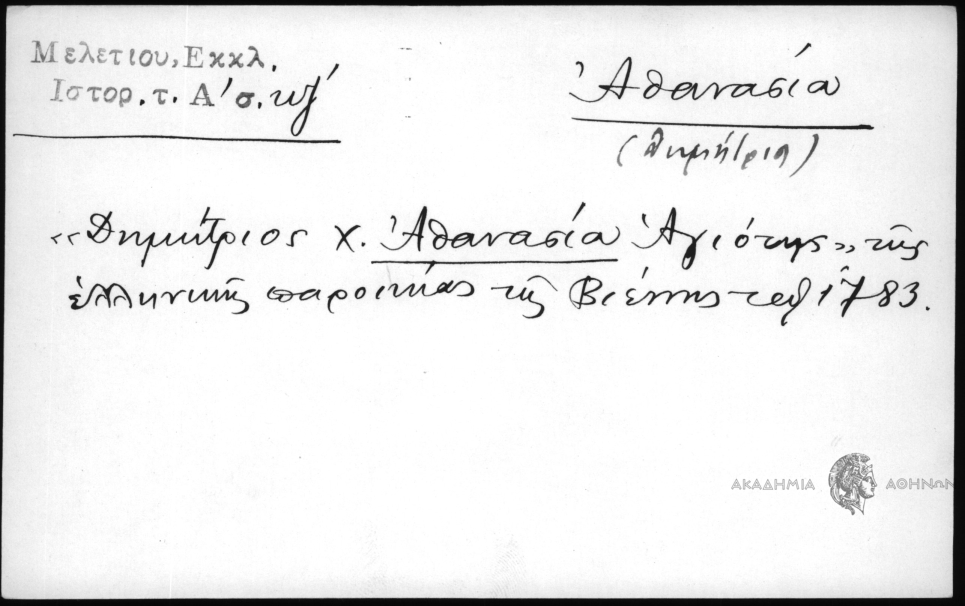 Μελετιου, Εκκλ.
Ιστορ. τ. Α' σ. κζ'
Ἀθανασία
(Δημήτρια)
«Δημήτριος Χ. Ἀθανασία Ἁγιότης» τῆς
ἑλληνικῆς παροικίας τῆς Βιέννης τοῦ 1783.
ΑΚΑΔΗΜΙΑ ΑΘΗΝΩΝ